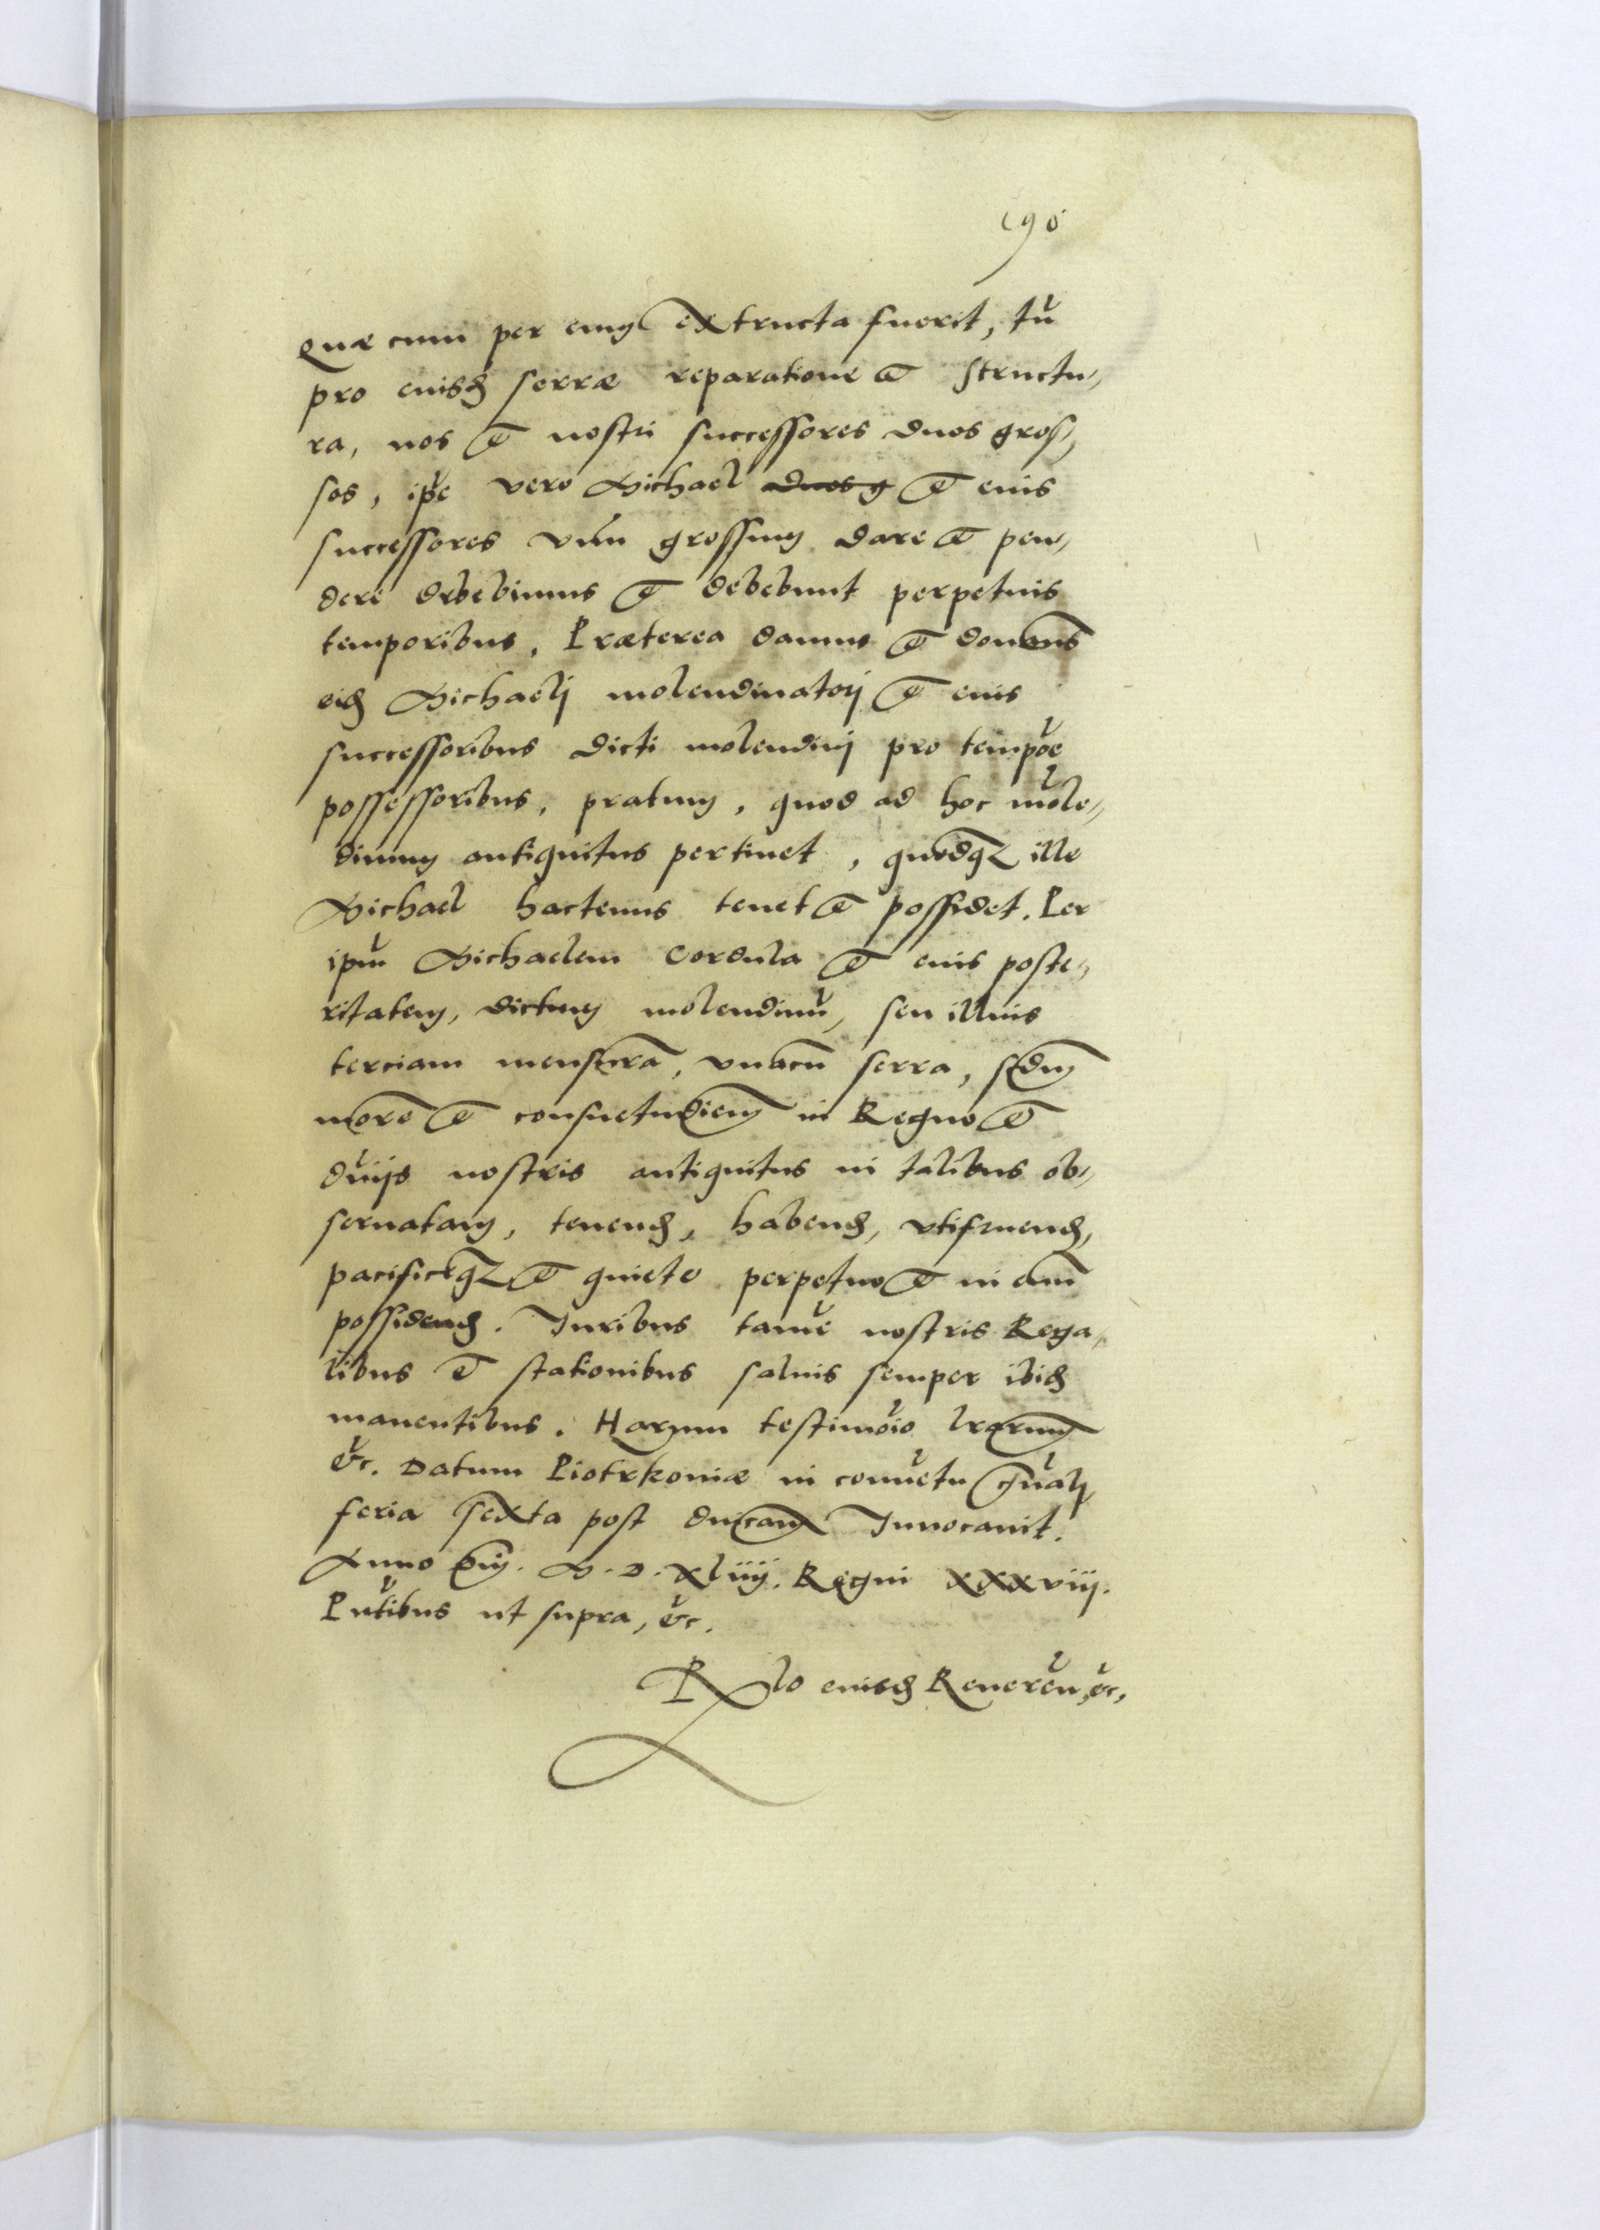 190
Quæ cum per eum extructa fuerit, tũ
pro eiusd̃ serræ reparatione et structu,,
ra, nos et nostri successores duos gros,,
sos, ip̃e vero Michael duos g et eius
successores vnũ grossum dare et pen,,
dere debebimus et debebunt perpetuis
temporibus. Præterea damus et donamus
eid̃ Michaelj molendinatorj et eius
successoribus dicti molendinj pro tempõe
possessoribus, pratum, quod ad hoc mõle,,
dinum antiquitus pertinet, quodq; ille
Michael hactenus tenet et possidet. Per
ip̃m Michaelem Cordula et eius poste,,
ritatem, dictum molendinũ, seu illius
terciam mensurã, vnacũ serra, scd̃m
morẽ et consuetudiẽm in Regno et
dñijs nostris antiquitus in talibus ob,,
seruatam, tenend̃, habend̃, vtifruend̃,
pacificeq; et quiete perpetuo et in æuũ
possidend̃. Iuribus tamẽ nostris Rega,,
libus et stationibus saluis semper ibid̃
manentibus. Harum testimõio l̃rarum
&c. Datum Piotrkouiæ in conuẽtu gñalj
feria sexta post dñicam Inuocauit.
Anno Dñj. M.D.xliiij. Regni xxxviij.
Pñtibus ut supra, &c.
R̃lo eiusd̃ Reuereñ, &c,